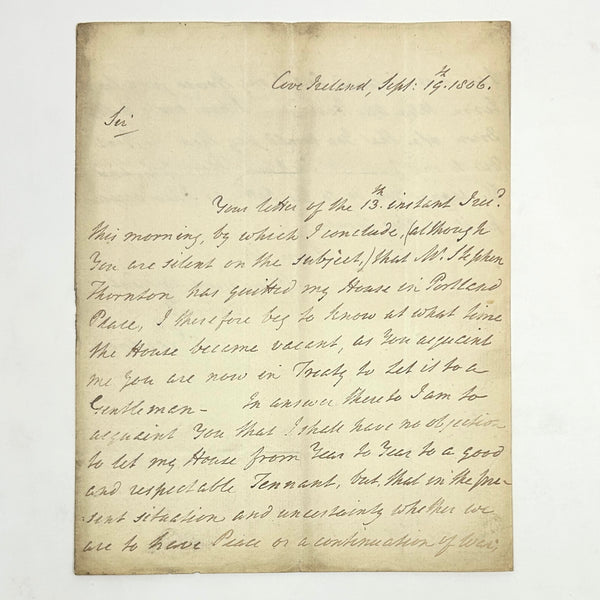 Cove Ireland, Sept: 19.th 1806.
Sir
Your letter of the 13.th instant I rec.d
this morning, by which I conclude, (although
You are silent on the subject,) that Mr. Stephen
Thornton has quitted my House in Portland
Place, I therefore beg to know at what time
the House became vacant, as You acquaint
me You are now in Treaty to let it to a
Gentleman - In answer thereto I am to
acquaint You that I shall have no objection
to let my House from Year to Year to a good
and respectable Tennant, but that in the pre-
sent situation and uncertainty whether we
are to have Peace or a continuation of War,